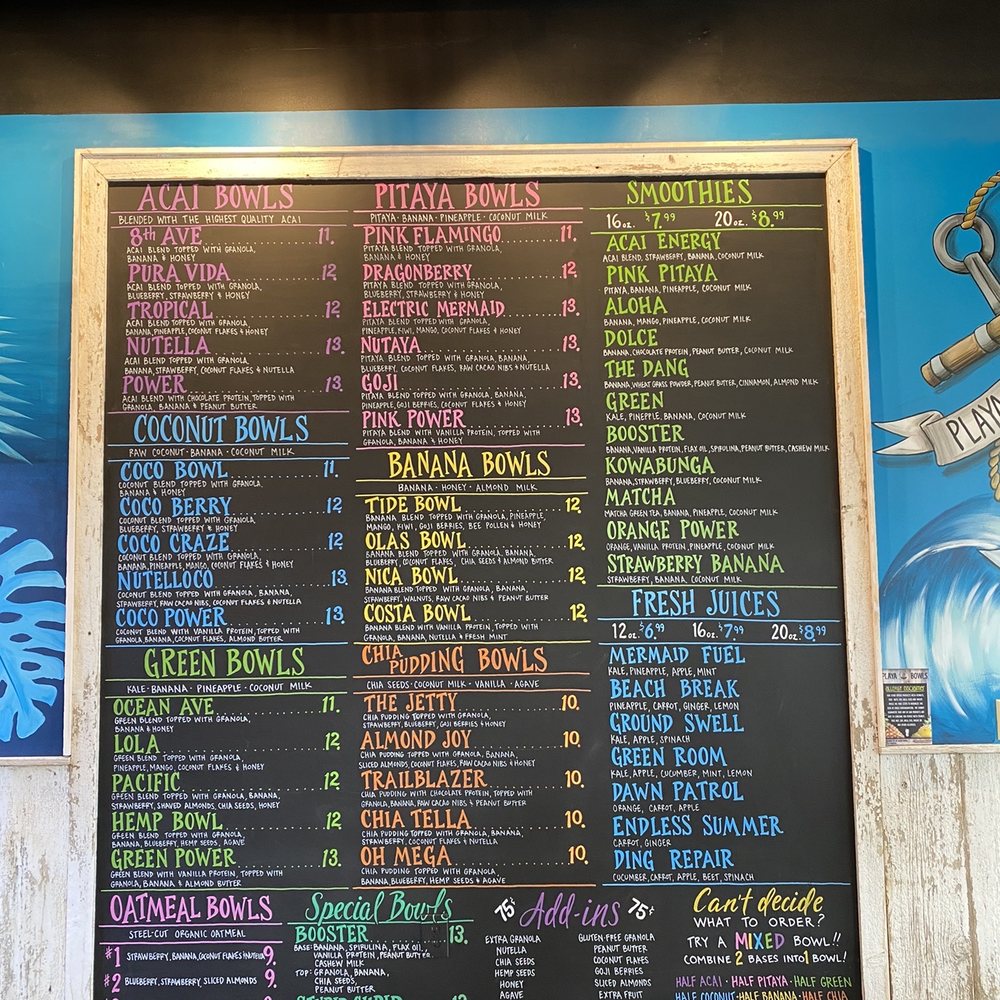 ACAI BOWLS
BLENDED WITH THE HIGHEST QUALITY ACAI
8th AVE 11.
ACAI BLEND TOPPED WITH GRANOLA,
BANANA & HONEY
PURA VIDA 12.
ACAI BLEND TOPPED WITH GRANOLA,
BLUEBERRY, STRAWBERRY & HONEY
TROPICAL 12.
ACAI BLEND TOPPED WITH GRANOLA,
BANANA, PINEAPPLE, COCONUT FLAKES & HONEY
NUTELLA 13.
ACAI BLEND TOPPED WITH GRANOLA,
BANANA, STRAWBERRY, COCONUT FLAKES & NUTELLA
POWER 13.
ACAI BLEND WITH CHOCOLATE PROTEIN, TOPPED WITH
GRANOLA, BANANA & PEANUT BUTTER
COCONUT BOWLS
RAW COCONUT · BANANA · COCONUT MILK
COCO BOWL 11.
COCONUT BLEND TOPPED WITH GRANOLA,
BANANA & HONEY
COCO BERRY 12.
COCONUT BLEND TOPPED WITH GRANOLA,
BLUEBERRY, STRAWBERRY & HONEY
COCO CRAZE 12.
COCONUT BLEND TOPPED WITH GRANOLA,
BANANA, PINEAPPLE, MANGO, COCONUT FLAKES & HONEY
NUTELLOCO 13.
COCONUT BLEND TOPPED WITH GRANOLA, BANANA,
STRAWBERRY, RAW CACAO NIBS, COCONUT FLAKES & NUTELLA
COCO POWER 13.
COCONUT BLEND WITH VANILLA PROTEIN, TOPPED WITH
GRANOLA, BANANA, COCONUT FLAKES, ALMOND BUTTER
GREEN BOWLS
KALE · BANANA · PINEAPPLE · COCONUT MILK
OCEAN AVE 11.
GREEN BLEND TOPPED WITH GRANOLA,
BANANA & HONEY
LOLA 12.
GREEN BLEND TOPPED WITH GRANOLA,
PINEAPPLE, MANGO, COCONUT FLAKES & HONEY
PACIFIC 12.
GREEN BLEND TOPPED WITH GRANOLA, BANANA,
STRAWBERRY, SHAVED ALMONDS, CHIA SEEDS, HONEY
HEMP BOWL 12
GREEN BLEND TOPPED WITH GRANOLA,
BANANA, BLUEBERRY, HEMP SEEDS, AGAVE
GREEN POWER 13.
GREEN BLEND WITH VANILLA PROTEIN, TOPPED WITH
GRANOLA, BANANA & ALMOND BUTTER
OATMEAL BOWLS
STEEL-CUT ORGANIC OATMEAL
#1 STRAWBERRY, BANANA, COCONUT FLAKES & NUTELLA 9.
#2 BLUEBERRY, STRAWBERRY, SLICED ALMONDS 9.
PITAYA BOWLS
PITAYA · BANANA · PINEAPPLE · COCONUT MILK
PINK FLAMINGO 11.
PITAYA BLEND TOPPED WITH GRANOLA,
BANANA & HONEY
DRAGONBERRY 12.
PITAYA BLEND TOPPED WITH GRANOLA,
BLUEBERRY, STRAWBERRY & HONEY
ELECTRIC MERMAID 13.
PITAYA BLEND TOPPED WITH GRANOLA,
PINEAPPLE, KIWI, MANGO, COCONUT FLAKES & HONEY
NUTAYA 13.
PITAYA BLEND TOPPED WITH GRANOLA, BANANA,
BLUEBERRY, COCONUT FLAKES, RAW CACAO NIBS & NUTELLA
GOJI 13.
PITAYA BLEND TOPPED WITH GRANOLA, BANANA,
PINEAPPLE, GOJI BERRIES, COCONUT FLAKES & HONEY
PINK POWER 13.
PITAYA BLEND WITH VANILLA PROTEIN, TOPPED WITH
GRANOLA, BANANA & HONEY
BANANA BOWLS
BANANA · HONEY · ALMOND MILK
TIDE BOWL 12.
BANANA BLEND TOPPED WITH GRANOLA, PINEAPPLE,
MANGO, KIWI, GOJI BERRIES, BEE POLLEN & HONEY
OLAS BOWL 12.
BANANA BLEND TOPPED WITH GRANOLA, BANANA,
BLUEBERRY, COCONUT FLAKES, CHIA SEEDS & ALMOND BUTTER
NICA BOWL 12.
BANANA BLEND TOPPED WITH GRANOLA, BANANA,
STRAWBERRY, WALNUTS, RAW CACAO NIBS & PEANUT BUTTER
COSTA BOWL 12.
BANANA BLEND WITH VANILLA PROTEIN, TOPPED WITH
GRANOLA, BANANA, NUTELLA & FRESH MINT
CHIA PUDDING BOWLS
CHIA SEEDS · COCONUT MILK · VANILLA · AGAVE
THE JETTY 10.
CHIA PUDDING TOPPED WITH GRANOLA,
STRAWBERRY, BLUEBERRY, GOJI BERRIES & HONEY
ALMOND JOY 10.
CHIA PUDDING TOPPED WITH GRANOLA, BANANA,
SLICED ALMONDS, COCONUT FLAKES, RAW CACAO NIBS & HONEY
TRAILBLAZER 10.
CHIA PUDDING WITH CHOCOLATE PROTEIN, TOPPED WITH
GRANOLA, BANANA, RAW CACAO NIBS & PEANUT BUTTER
CHIA TELLA 10.
CHIA PUDDING TOPPED WITH GRANOLA, BANANA,
STRAWBERRY, COCONUT FLAKES & NUTELLA
OH MEGA 10.
CHIA PUDDING TOPPED WITH GRANOLA,
BANANA, BLUEBERRY, HEMP SEEDS & AGAVE
Special Bowls
BOOSTER 13.
BASE: BANANA, SPIRULINA, FLAX OIL,
VANILLA PROTEIN, PEANUT BUTTER,
CASHEW MILK
TOP: GRANOLA, BANANA,
CHIA SEEDS,
PEANUT BUTTER
75¢ Add-ins 75¢
EXTRA GRANOLA
NUTELLA
CHIA SEEDS
HEMP SEEDS
HONEY
AGAVE
GLUTEN-FREE GRANOLA
PEANUT BUTTER
COCONUT FLAKES
GOJI BERRIES
SLICED ALMONDS
EXTRA FRUIT
SMOOTHIES
16 oz. $7.99 20 oz. $8.99
ACAI ENERGY
ACAI BLEND, STRAWBERRY, BANANA, COCONUT MILK
PINK PITAYA
PITAYA, BANANA, PINEAPPLE, COCONUT MILK
ALOHA
BANANA, MANGO, PINEAPPLE, COCONUT MILK
DOLCE
BANANA, CHOCOLATE PROTEIN, PEANUT BUTTER, COCONUT MILK
THE DANG
BANANA, WHEAT GRASS POWDER, PEANUT BUTTER, CINNAMON, ALMOND MILK
GREEN
KALE, PINEPPLE, BANANA, COCONUT MILK
BOOSTER
BANANA, VANILLA PROTEIN, FLAX OIL, SPIRULINA, PEANUT BUTTER, CASHEW MILK
KOWABUNGA
BANANA, STRAWBERRY, BLUEBERRY, COCONUT MILK
MATCHA
MATCHA GREEN TEA, BANANA, PINEAPPLE, COCONUT MILK
ORANGE POWER
ORANGE, VANILLA PROTEIN, PINEAPPLE, COCONUT MILK
STRAWBERRY BANANA
STRAWBERRY, BANANA, COCONUT MILK
FRESH JUICES
12 oz. $6.99 16 oz. $7.99 20 oz. $8.99
MERMAID FUEL
KALE, PINEAPPLE, APPLE, MINT
BEACH BREAK
PINEAPPLE, CARROT, GINGER, LEMON
GROUND SWELL
KALE, APPLE, SPINACH
GREEN ROOM
KALE, APPLE, CUCUMBER, MINT, LEMON
DAWN PATROL
ORANGE, CARROT, APPLE
ENDLESS SUMMER
CARROT, GINGER
DING REPAIR
CUCUMBER, CARROT, APPLE, BEET, SPINACH
Can't decide
WHAT TO ORDER?
TRY A MIXED BOWL!!
COMBINE 2 BASES INTO 1 BOWL!
HALF ACAI · HALF PITAYA · HALF GREEN
HALF COCONUT · HALF BANANA · HALF CHIA
PLAYA
PLAYA BOWLS